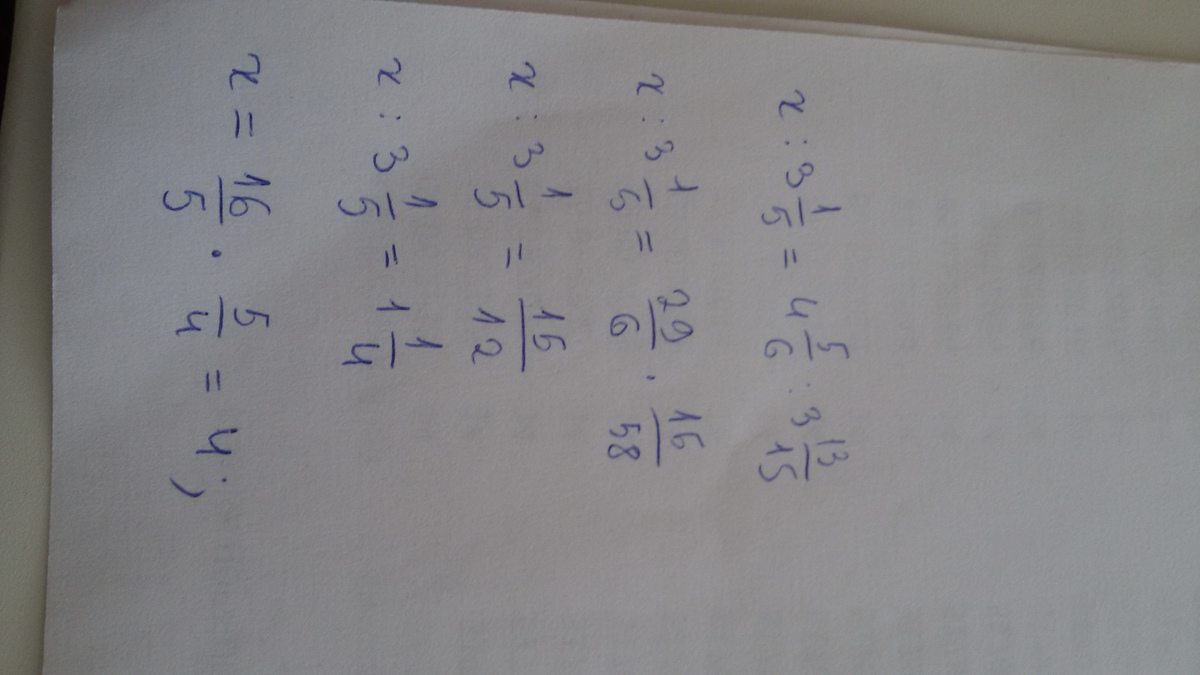 x : 3 1/5 = 4 5/6 : 3 13/15
x : 3 1/5 = 29/6 · 15/58
x : 3 1/5 = 15/12
x : 3 1/5 = 1 1/4
x = 16/5 · 5/4 = 4 ;)